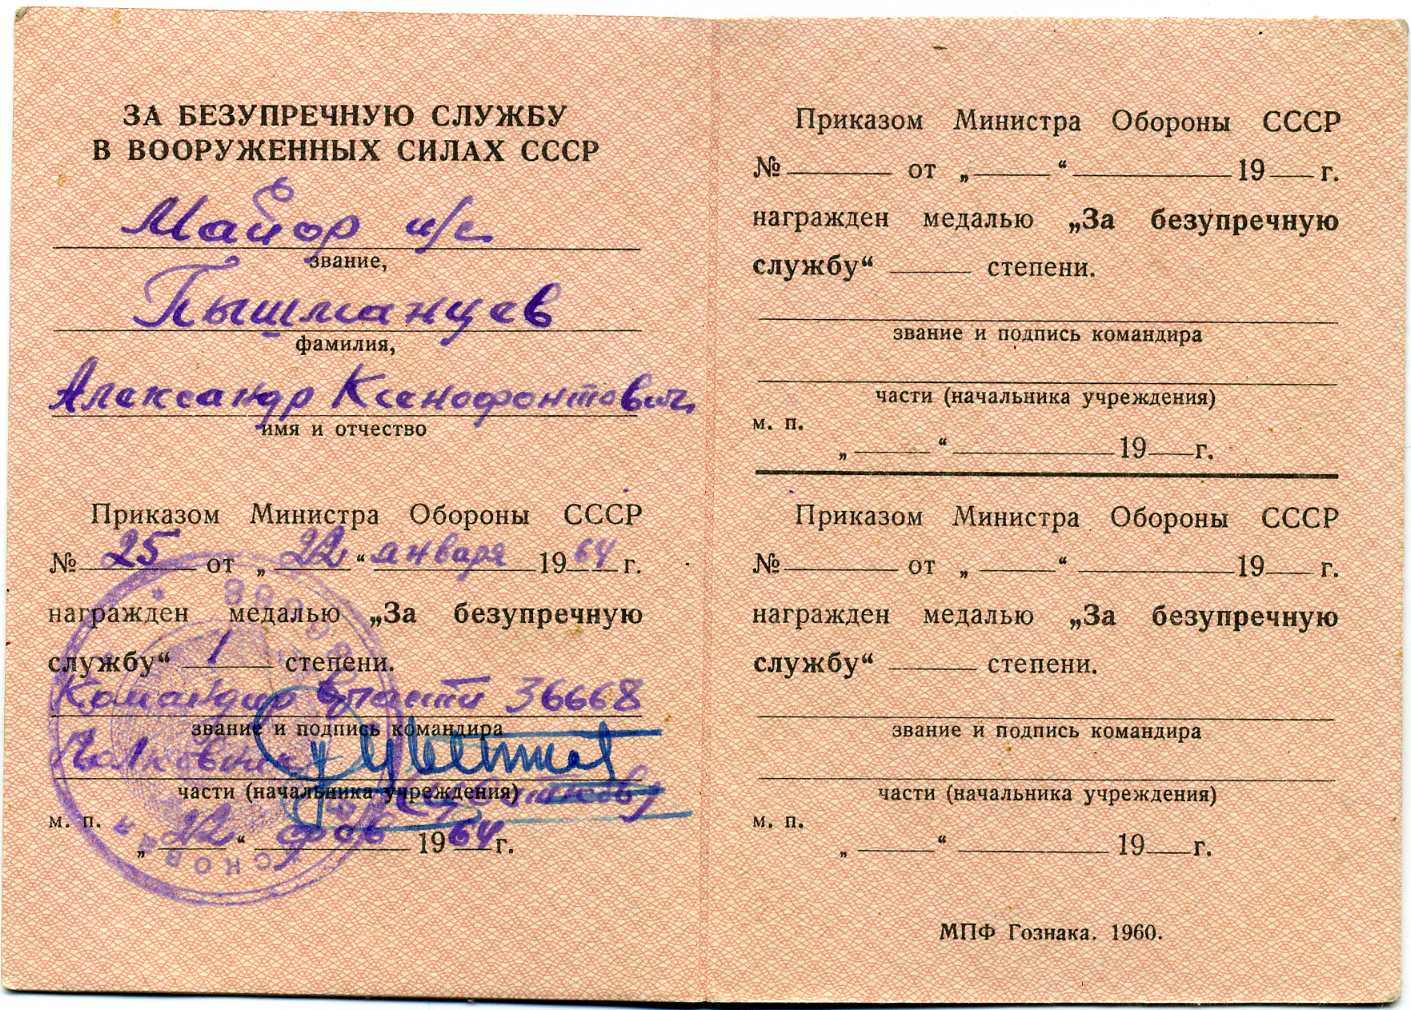 ЗА БЕЗУПРЕЧНУЮ СЛУЖБУ
В ВООРУЖЕННЫХ СИЛАХ СССР
Майор и/с
звание,
Пышманцев
фамилия,
Александр Ксенофонтович
имя и отчество
Приказом Министра Обороны СССР
№ 25 от „ 22 “ января 1964 г.
награжден медалью „За безупречную
службу“ 1 степени.
Командир в/части 36668
звание и подпись командира
Полковник
части (начальника учреждения)
м. п.
„ 22 “ фев 1964 г.
Приказом Министра Обороны СССР
№ от „ “ 19 г.
награжден медалью „За безупречную
службу“ степени.
звание и подпись командира
части (начальника учреждения)
м. п.
„ “ 19 г.
Приказом Министра Обороны СССР
№ от „ “ 19 г.
награжден медалью „За безупречную
службу“ степени.
звание и подпись командира
части (начальника учреждения)
м. п.
„ “ 19 г.
МПФ Гознака. 1960.